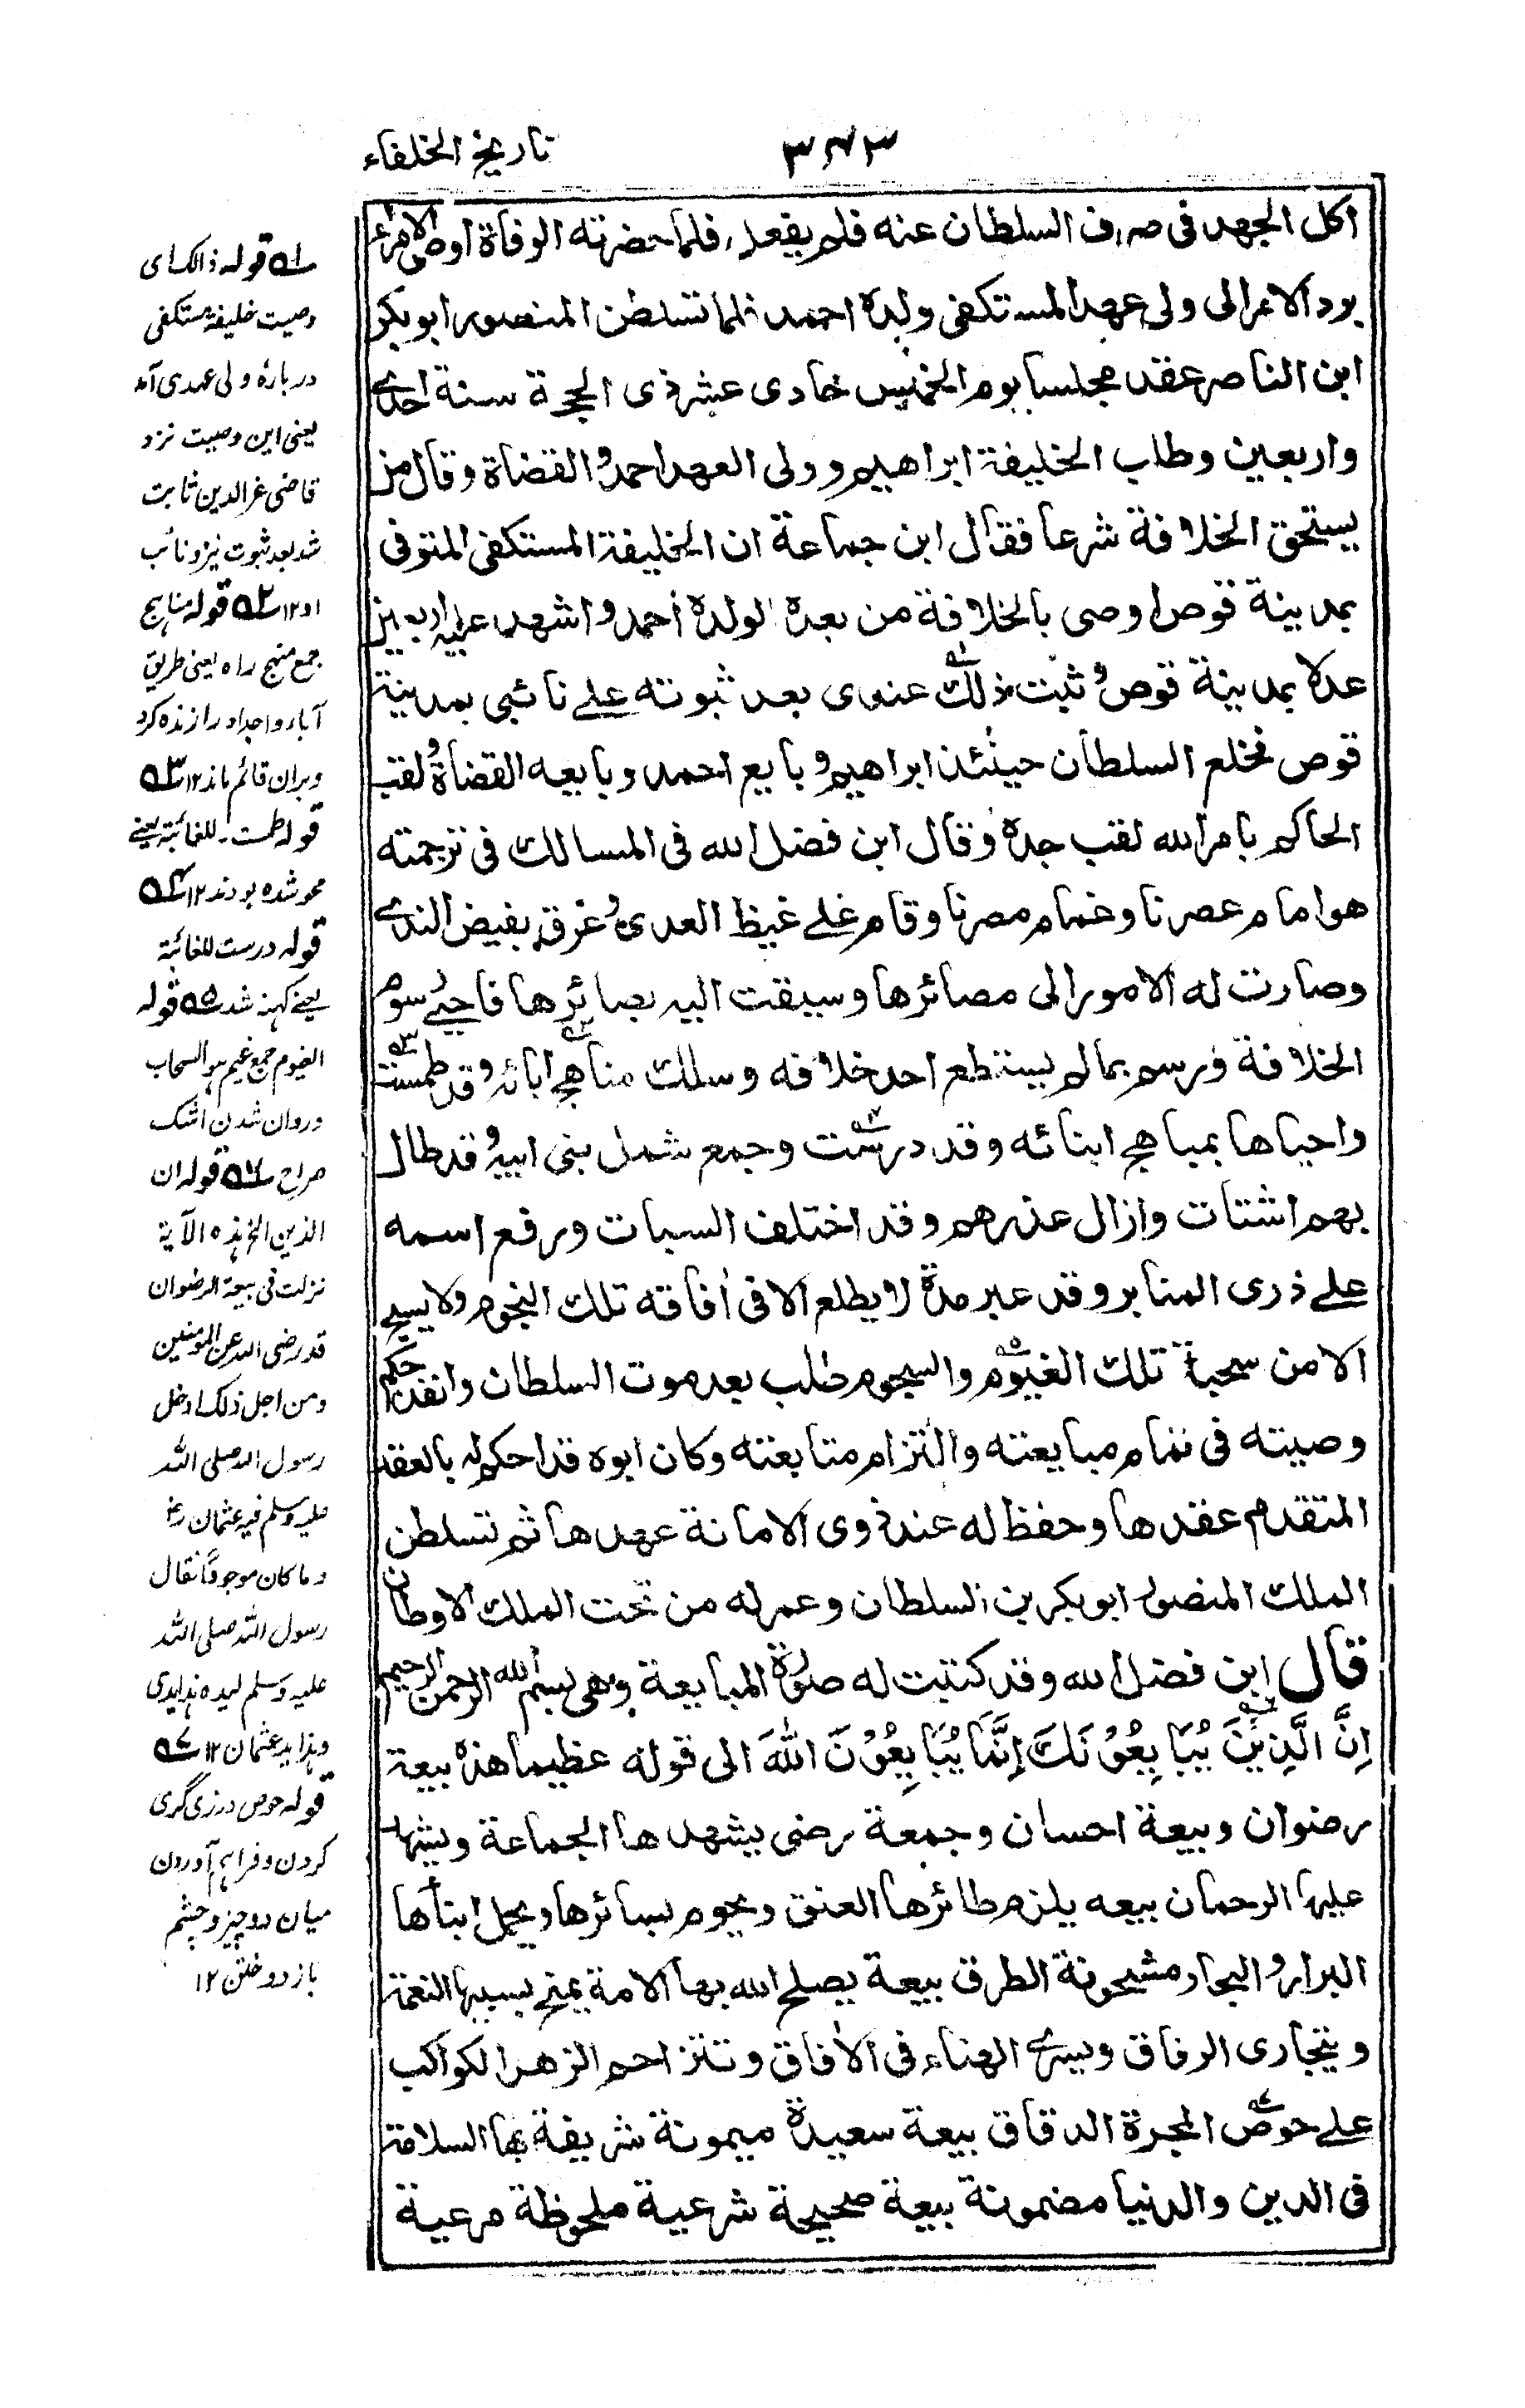 تاريخ الخلفاء
٣٤٣
اكل الجهد فى صرف السلطان عنه فلم يفعل فلما حضرته الوفاة اوصى الامراء
برد الامر الى ولى عهد المستكفى ولده احمد فلما تسلطن المنصور ابو بكر
ابن الناصر عقد مجلسا يوم الخميس حادى عشر ذى الحجة سنة احدے
واربعين وطلب الخليفة ابراهيم وولى العهد احمد والقضاة وقال من
يستحق الخلافة شرعا فقال ابن جماعة ان الخليفة المستكفى المتوفى
بمدينة قوص اوصى بالخلافة من بعده لولده احمد واشهد عليه اربعين
عدلا بمدينة قوص وثبت ذلك عندى بعد ثبوته علے نائبى بمدينة
قوص فخلع السلطان حينئذ ابراهيم وبايع احمد وبايعه القضاة ولقب
الحاكم بامر الله لقب جده وقال ابن فضل الله فى المسالك فى ترجمته
هو امام عصرنا وغمام مصرنا وقام علے غيظ العدى وغرق بفيض الندے
وصارت له الامور الى مصائرها وسيقت اليه بصائرها فاحيے رسوم
الخلافة ورسم بما لم يستطع احد خلافه وسلك مناهج ابائه وقد طمست
واحياها بمباهج ابنائه وقد درست وجمع شمل بنى ابيه وقد طال
بهم اشتات وازال عذرهم وقد اختلف السبات ورفع اسمه
علے ذرى المنابر وقد عبر مدة لا يطلع الا فى أفاقه تلك النجوم ولا يسح
الا من سحبه تلك الغيوم والسجوم طلب بعد موت السلطان وانفذ حكم
وصيته فى تمام مبايعته والتزام متابعته وكان ابوه قد احكم له بالعقد
المتقدم عقدها وحفظ له عند ذوى الامانة عهدها ثم تسلطن
الملك المنصور ابو بكر بن السلطان وعمر له من تحت الملك الاوطان
قال ابن فضل الله وقد كتبت له صورة المبايعة وهى بسم الله الرحمن الرحيم
اِنَّ الَّذِيْنَ يُبَايِعُوْنَكَ اِنَّمَا يُبَايِعُوْنَ اللهَ الى قوله عظيما هذه بيعة
رضوان وبيعة احسان وجمعة رضى يشهدها الجماعة ويشهد
عليها الرحمان بيعه يلزم طائرها العنق ويحوم بسائرها ويحمل ابنأها
البرارى والبحار مشحونة الطرق بيعة يصلح الله بها الامة يمنح بسببها النعمة
ويتجارى الرفاق ويسرے الهناء فى الأفاق وتتزاحم الزهر الكواكب
علے حوض المجرة الدقاق بيعة سعيدة ميمونة شريفة بها السلامة
فى الدين والدنيا مضمونة بيعة صحيحة شرعية ملحوظة مرعية
ﻪ۱ قوله ذالك اى
وصيت خليفة مستكفى
درباره ولى عهدى آه
يعنى اين وصيت نزد
قاضى عز الدين ثابت
شد بعد ثبوت نزد نائب
او ۱۲ ﻪ۲ قوله مناهج
جمع منهج راه يعنى طريق
آباء واجداد را زنده كرد
وبران قائم ماند ۱۲ ﻪ۳
قوله طمست للغائبة يعنے
محو شده بودند ۱۲ ﻪ۴
قوله درست للغائبة
يعنے كهنه شد ﻪ۵ قوله
الغيوم جمع غيم هو السحاب
وروان شدن اشك
صراح ﻪ۶ قوله ان
الذين الخ هذه الآية
نزلت فى بيعة الرضوان
قد رضى الله عن المؤمنين
ومن اجل ذلك ادخل
رسول الله صلى الله
عليه وسلم فيه عثمان رض
وما كان موجودا فقال
رسول الله صلى الله
عليه وسلم ليده هذا يدى
وهذا يد عثمان ۱۲ ﻪ۷
قوله حوص درزى گرى
كردن وفراهم آوردن
ميان دو چيز وچشم
باز دوختن ۱۲